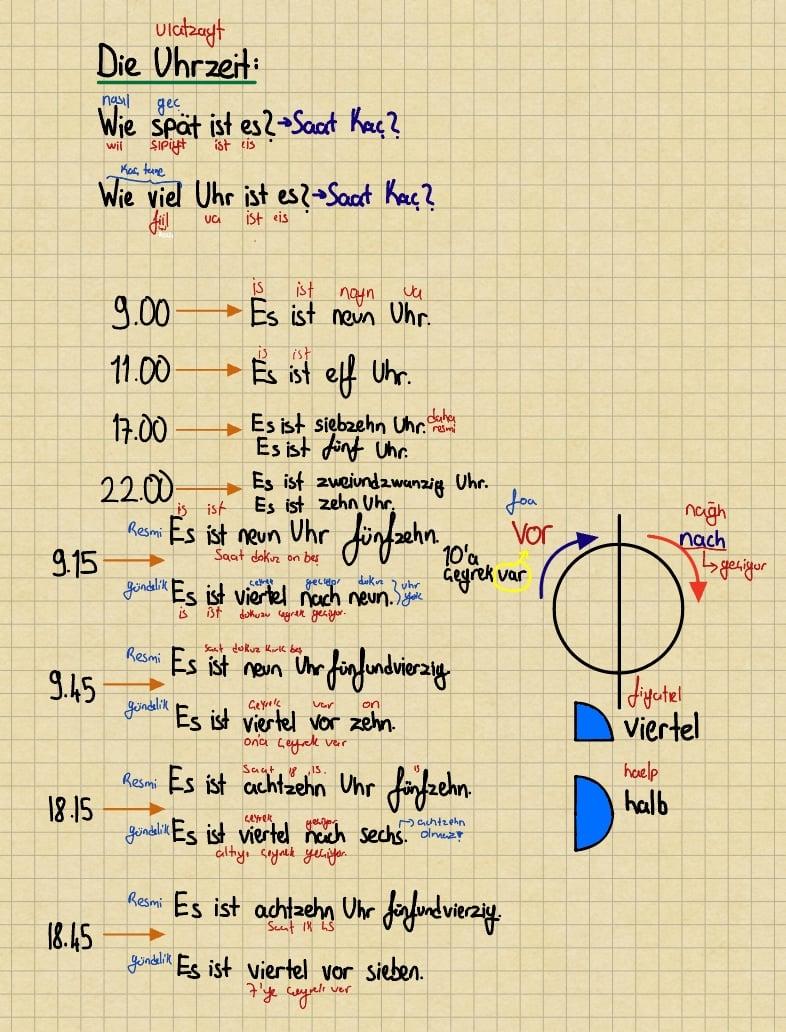 ulatzayt
Die Uhrzeit:
nasıl geç
Wie spät ist es? → Saat Kaç?
wii şipiyt ist eis
Kaç tane
Wie viel Uhr ist es? → Saat Kaç?
fiil ua ist eis
is ist noyn ua
9.00 → Es ist neun Uhr.
is ist
11.00 → Es ist elf Uhr.
17.00 → Es ist siebzehn Uhr. daha resmi
Es ist fünf Uhr.
22.00 → Es ist zweiundzwanzig Uhr.
Es ist zehn Uhr.
is ist
9.15 → Resmi Es ist neun Uhr fünfzehn.
Saat dokuz on beş
çeyrek geçiyor dokuz
gündelik Es ist viertel nach neun. } uhr yok
is ist dokuzu çeyrek geçiyor.
foa
vor
10'a
çeyrek var
nağh
nach
↳ geçiyor
saat dokuz kırk beş
9.45 → Resmi Es ist neun Uhr fünfundvierzig
çeyrek var on
gündelik Es ist viertel vor zehn.
ona çeyrek var
fiyatıel
viertel
haelp
halb
Saat 18 15
18.15 → Resmi Es ist achtzehn Uhr fünfzehn.
çeyrek geçiyor
gündelik Es ist viertel nach sechs. → achtzehn olmaz!
altıyı çeyrek geçiyor.
18.45 → Resmi Es ist achtzehn Uhr fünfundvierzig.
Saat 18 45
gündelik Es ist viertel vor sieben.
7'ye çeyrek var